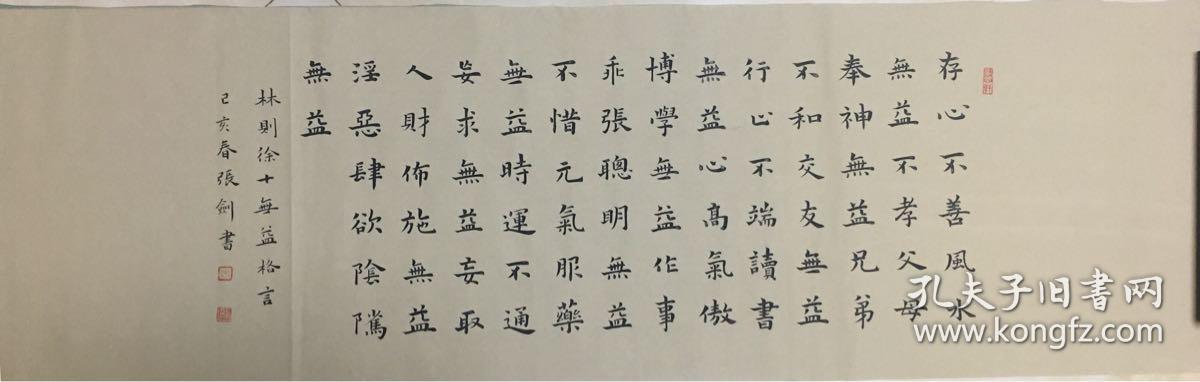 存心不善風水
無益不孝父母
奉神無益兄弟
不和交友無益
行止不端讀書
無益心高氣傲
博學無益作事
乖張聰明無益
不惜元氣服藥
無益時運不通
妄求無益妄取
人財佈施無益
淫惡肆欲陰騭
無益
林則徐十無益格言
己亥春張劍書
孔夫子旧书网
www.kongfz.com